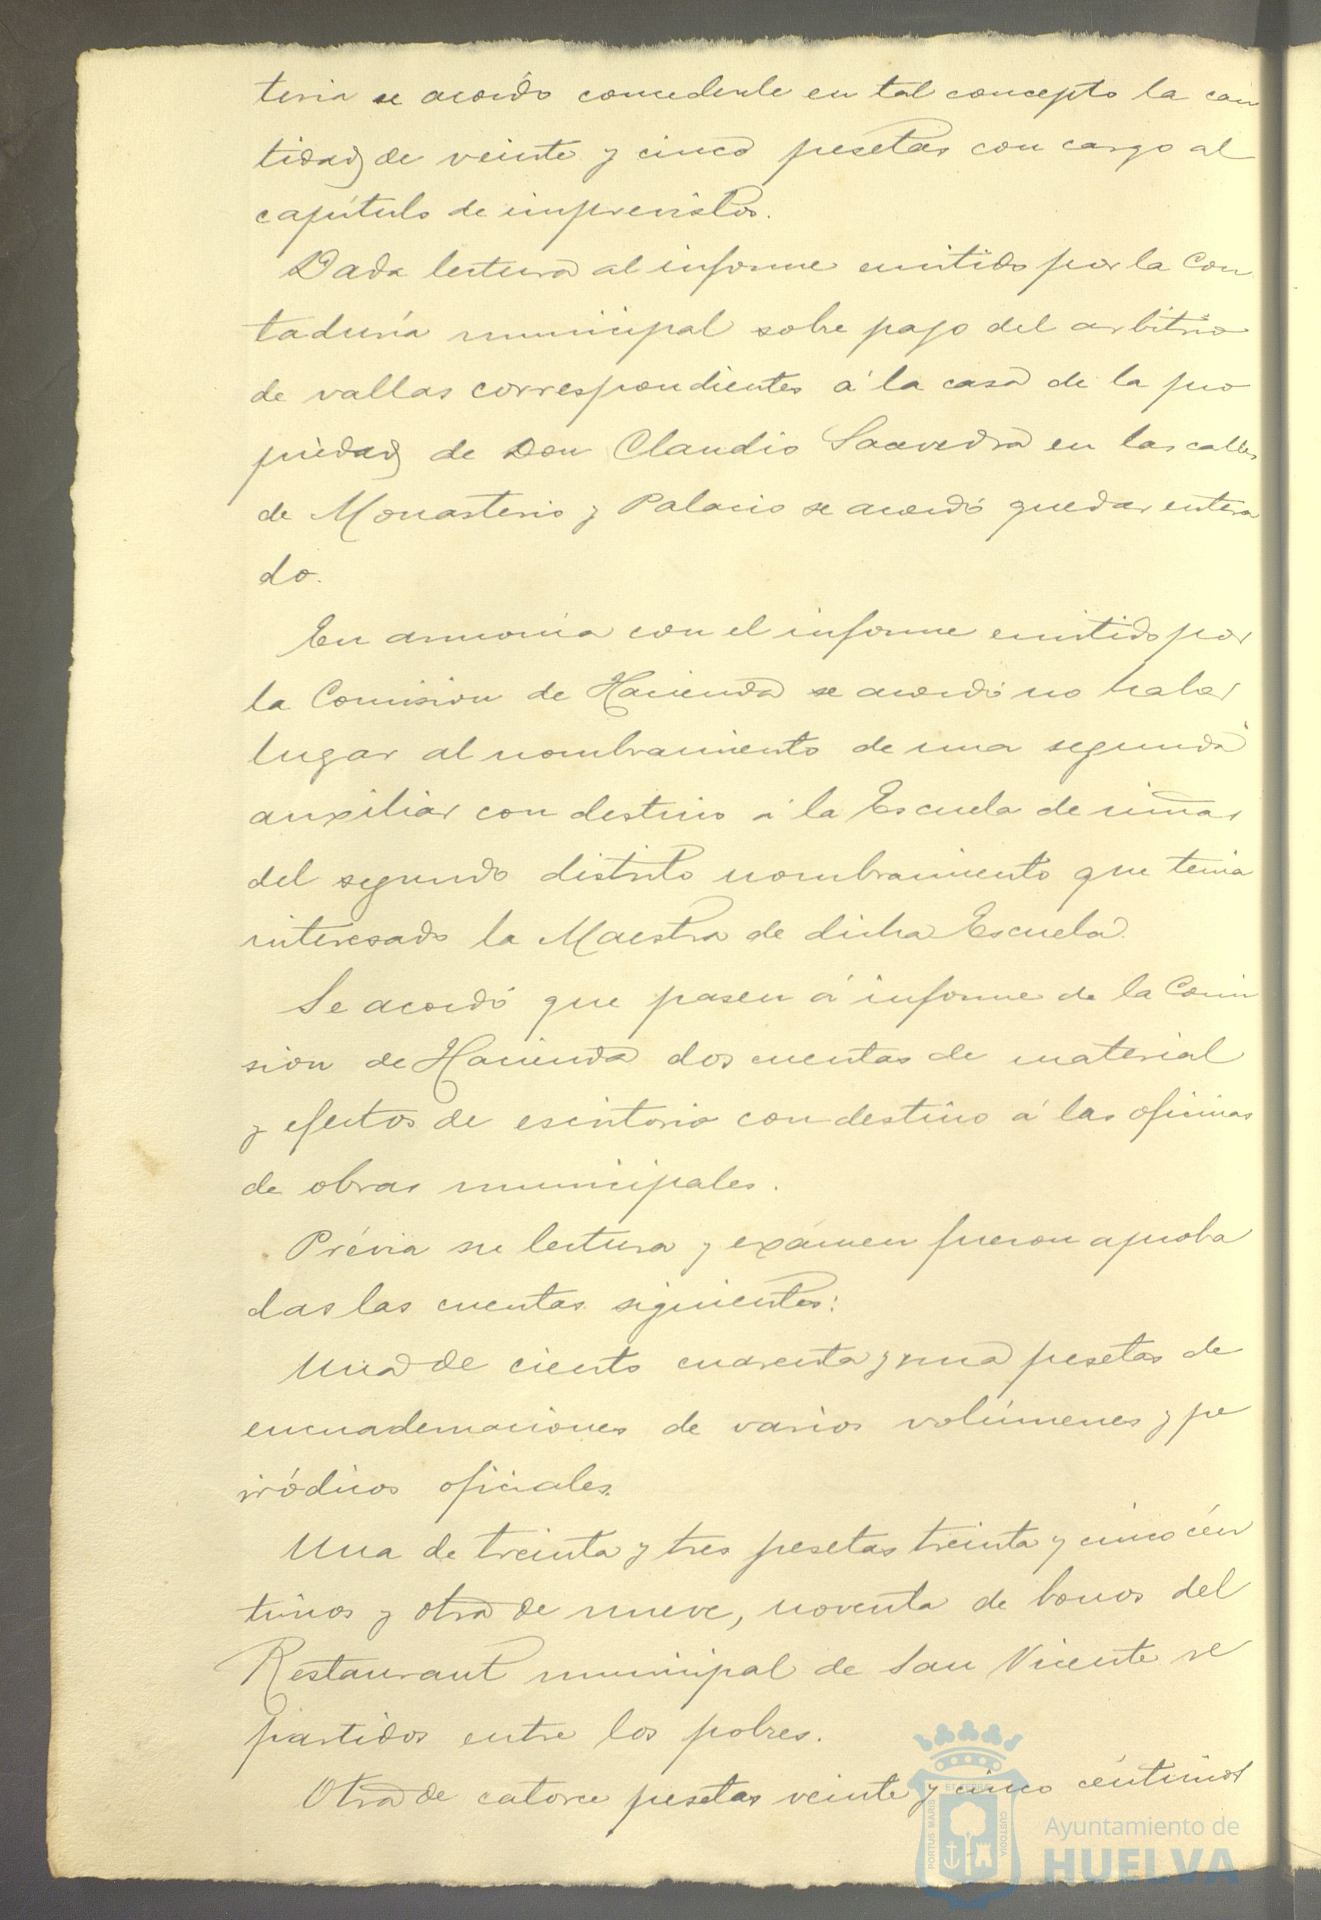 teria se acordó concederle en tal concepto la can
tidad de veinte y cinco pesetas con cargo al
capítulo de imprevistos.
Dada lectura al informe emitido por la Con
taduría municipal sobre pago del arbitrio
de vallas correspondientes á la casa de la pro
piedad de Don Claudio Saavedra en las calles
de Monasterio y Palacio se acordó quedar entera
do.
En armonía con el informe emitido por
la Comision de Hacienda se acordó no haber
lugar al nombramiento de una segunda
auxiliar con destino á la Escuela de niñas
del segundo distrito nombramiento que tenia
interesado la Maestra de dicha Escuela.
Se acordó que pasen á informe de la Comi
sion de Hacienda dos cuentas de material
y efectos de escritorio con destino á las oficinas
de obras municipales.
Prévia su lectura y exámen fueron aproba
das las cuentas siguientes:
Una de ciento cuarenta y una pesetas de
encuadernaciones de varios volúmenes y pe
riódicos oficiales.
Una de treinta y tres pesetas treinta y cinco cén
timos y otra de nueve, noventa de bonos del
Restaurant municipal de San Vicente re
partidos entre los pobres.
Otra de catorce pesetas veinte y cinco céntimos
PORTUS MARIS ET TERRE CUSTODIA
Ayuntamiento de
HUELVA